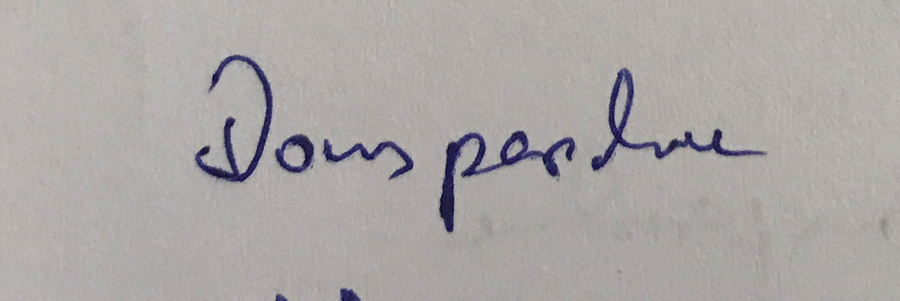 Dous perdue